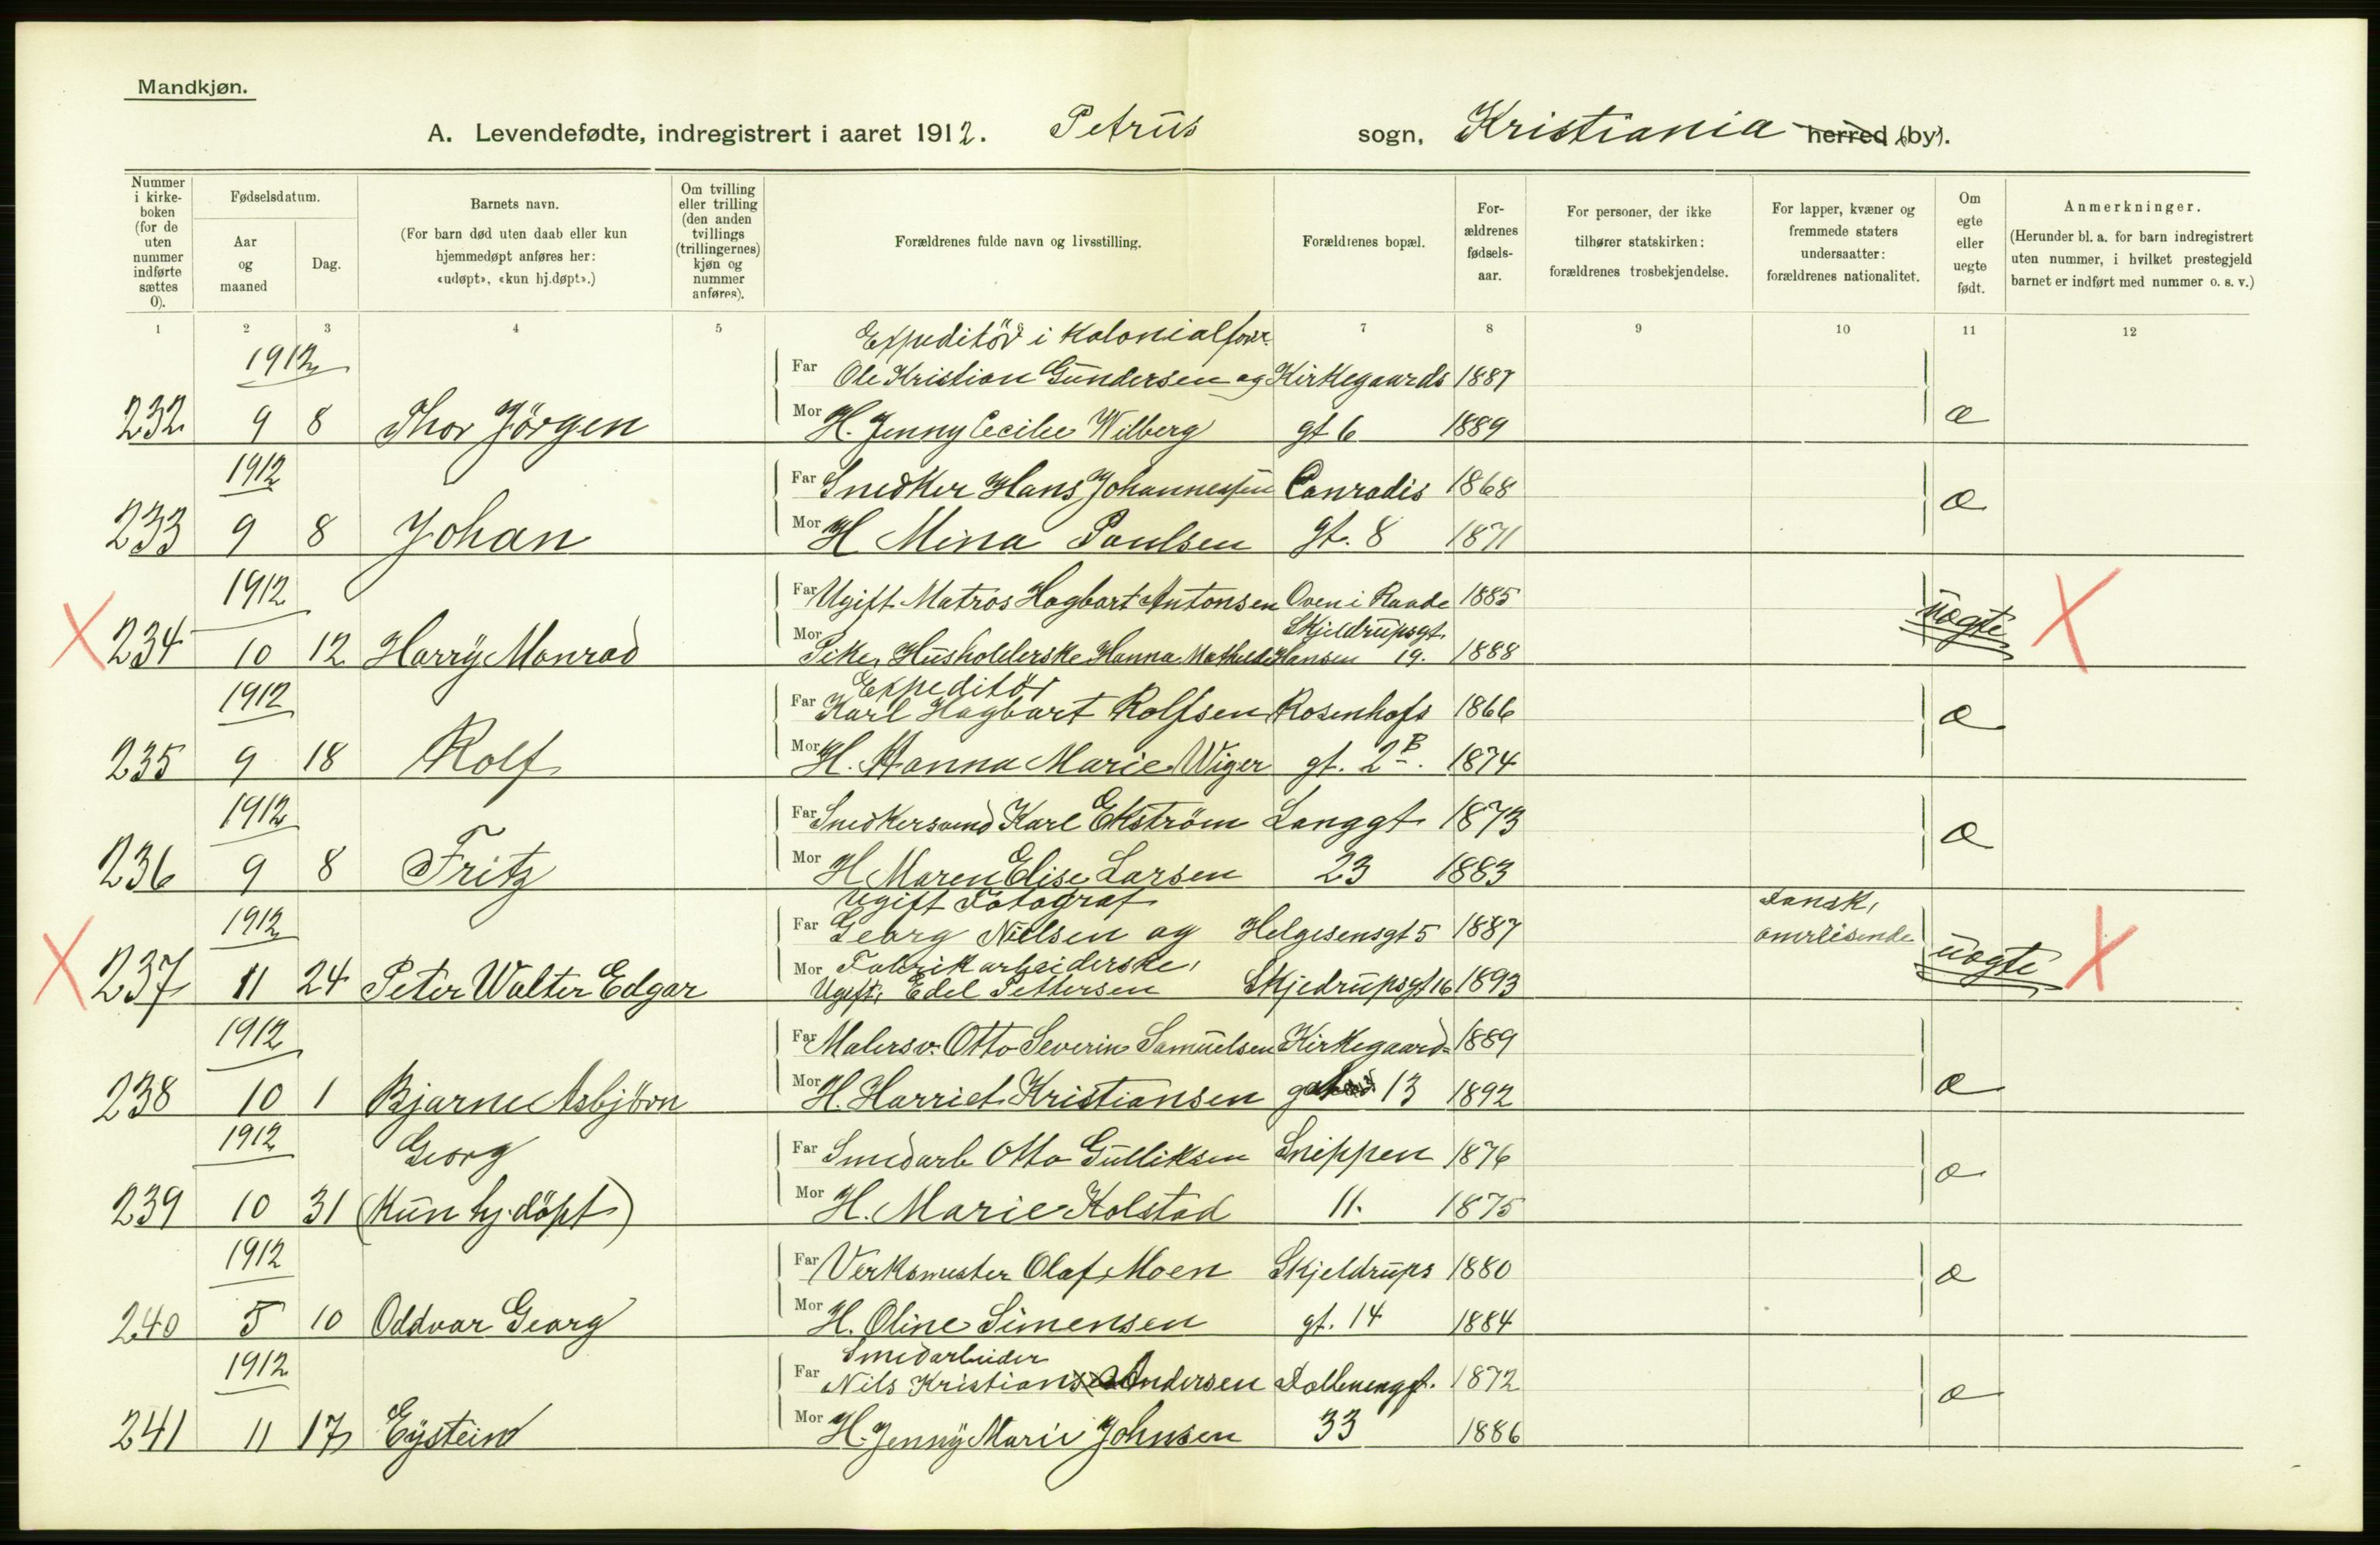 Mandkjøn.
A. Levendefødte, indregistrert i aaret 1912. Petrus sogn, Kristiania herred (by).
Nummer i kirke-boken (for de uten nummer indførte sættes 0).
Fødselsdatum.
Aar og maaned
Dag.
Barnets navn.
(For barn død uten daab eller kun hjemmedøpt anføres her: «udøpt», «kun hj.døpt».)
Om tvilling eller trilling (den anden tvillings (trillingernes) kjøn og nummer anføres).
Forældrenes fulde navn og livsstilling.
Forældrenes bopæl.
For-ældrenes fødsels-aar.
For personer, der ikke tilhører statskirken: forældrenes trosbekjendelse.
For lapper, kvæner og fremmede staters undersaatter: forældrenes nationalitet.
Om egte eller uegte født.
Anmerkninger.
(Herunder bl. a. for barn indregistrert uten nummer, i hvilket prestegjeld barnet er indført med nummer o. s. v.)
1 2 3 4 5 7 8 9 10 11 12
Expeditör i Kolonialforr.
1912 Far Ole Kristian Gundersen og Kirkegaards 1887
232 9 8 Thor Jörgen Mor H. Jenny Cecilie Wilberg gt 6 1889 æ
1912 Far Snedker Hans Johannessen Conradis 1868
233 9 8 Johan Mor H Mina Paulsen gt. 8 1871 æ
1912 Far Ugift Matros Hagbart Antonsen Oven i Raade 1885
Skjeldrupsgt.
X 234 10 12 Harry Monrad Mor Pike, Husholderske Hanna Mathilde Hansen 19. 1888 uegte X
Expeditör
1912 Far Karl Hagbart Rolfsen Rosenhofs 1866
235 9 18 Rolf Mor H. Hanna Marie Wiger gt. 2B. 1874 æ
1912 Far Snedkersvend Karl Ekström Langgt 1873
236 9 8 Fritz Mor H Maren Elise Larsen 23 1883 æ
Ugift Fotograf Dansk,
1912 Far Georg Nielsen og Helgesensgt 5 1887 omreisende
Fabrikarbeiderske,
X 237 11 24 Peter Walter Edgar Mor Ugift, Edel Pettersen Skjedrupsgt 16 1893 uegte X
1912 Far Malersv. Otto Severin Samuelsen Kirkegaard= 1889
238 10 1 Bjarne Asbjörn Mor H. Harriet Kristiansen gt 13 1892 æ
1912 Georg Far Smedarb Otto Gulliksen Snippen 1876
239 10 31 (Kun hj. döpt) Mor H. Marie Kolstad 11. 1875 æ
1912 Far Verksmester Olaf Moen Skjeldrups 1880
240 5 10 Oddvar Georg Mor H. Oline Simensen gt. 14 1884 æ
Smedarbeider
1912 Far Nils Kristian Andersen Dælenenggt. 1872
241 11 17 Eystein Mor H. Jenny Marie Johnsen 33 1886 æ